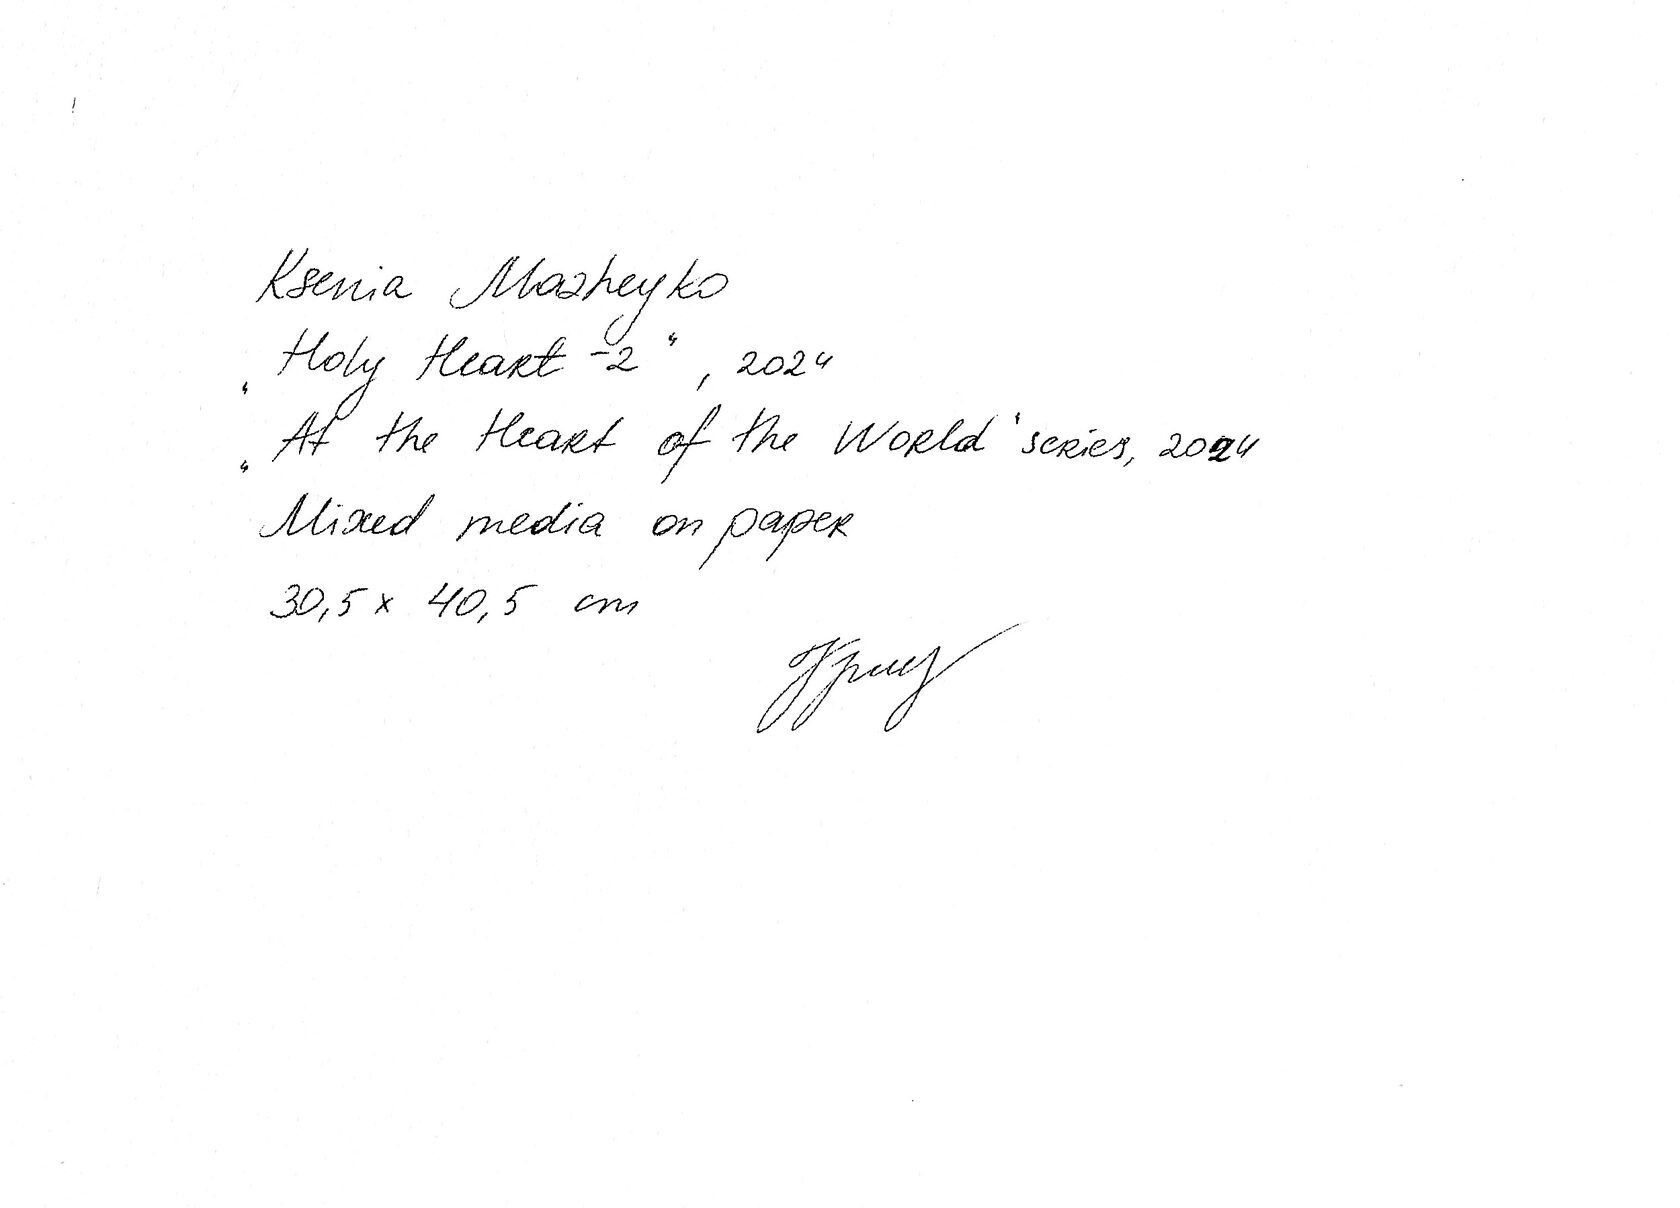 Ksenia Mazheyko
„Holy Heart -2“, 2024
„At the Heart of the World“ series, 2024
Mixed media on paper
30,5 x 40,5 cm